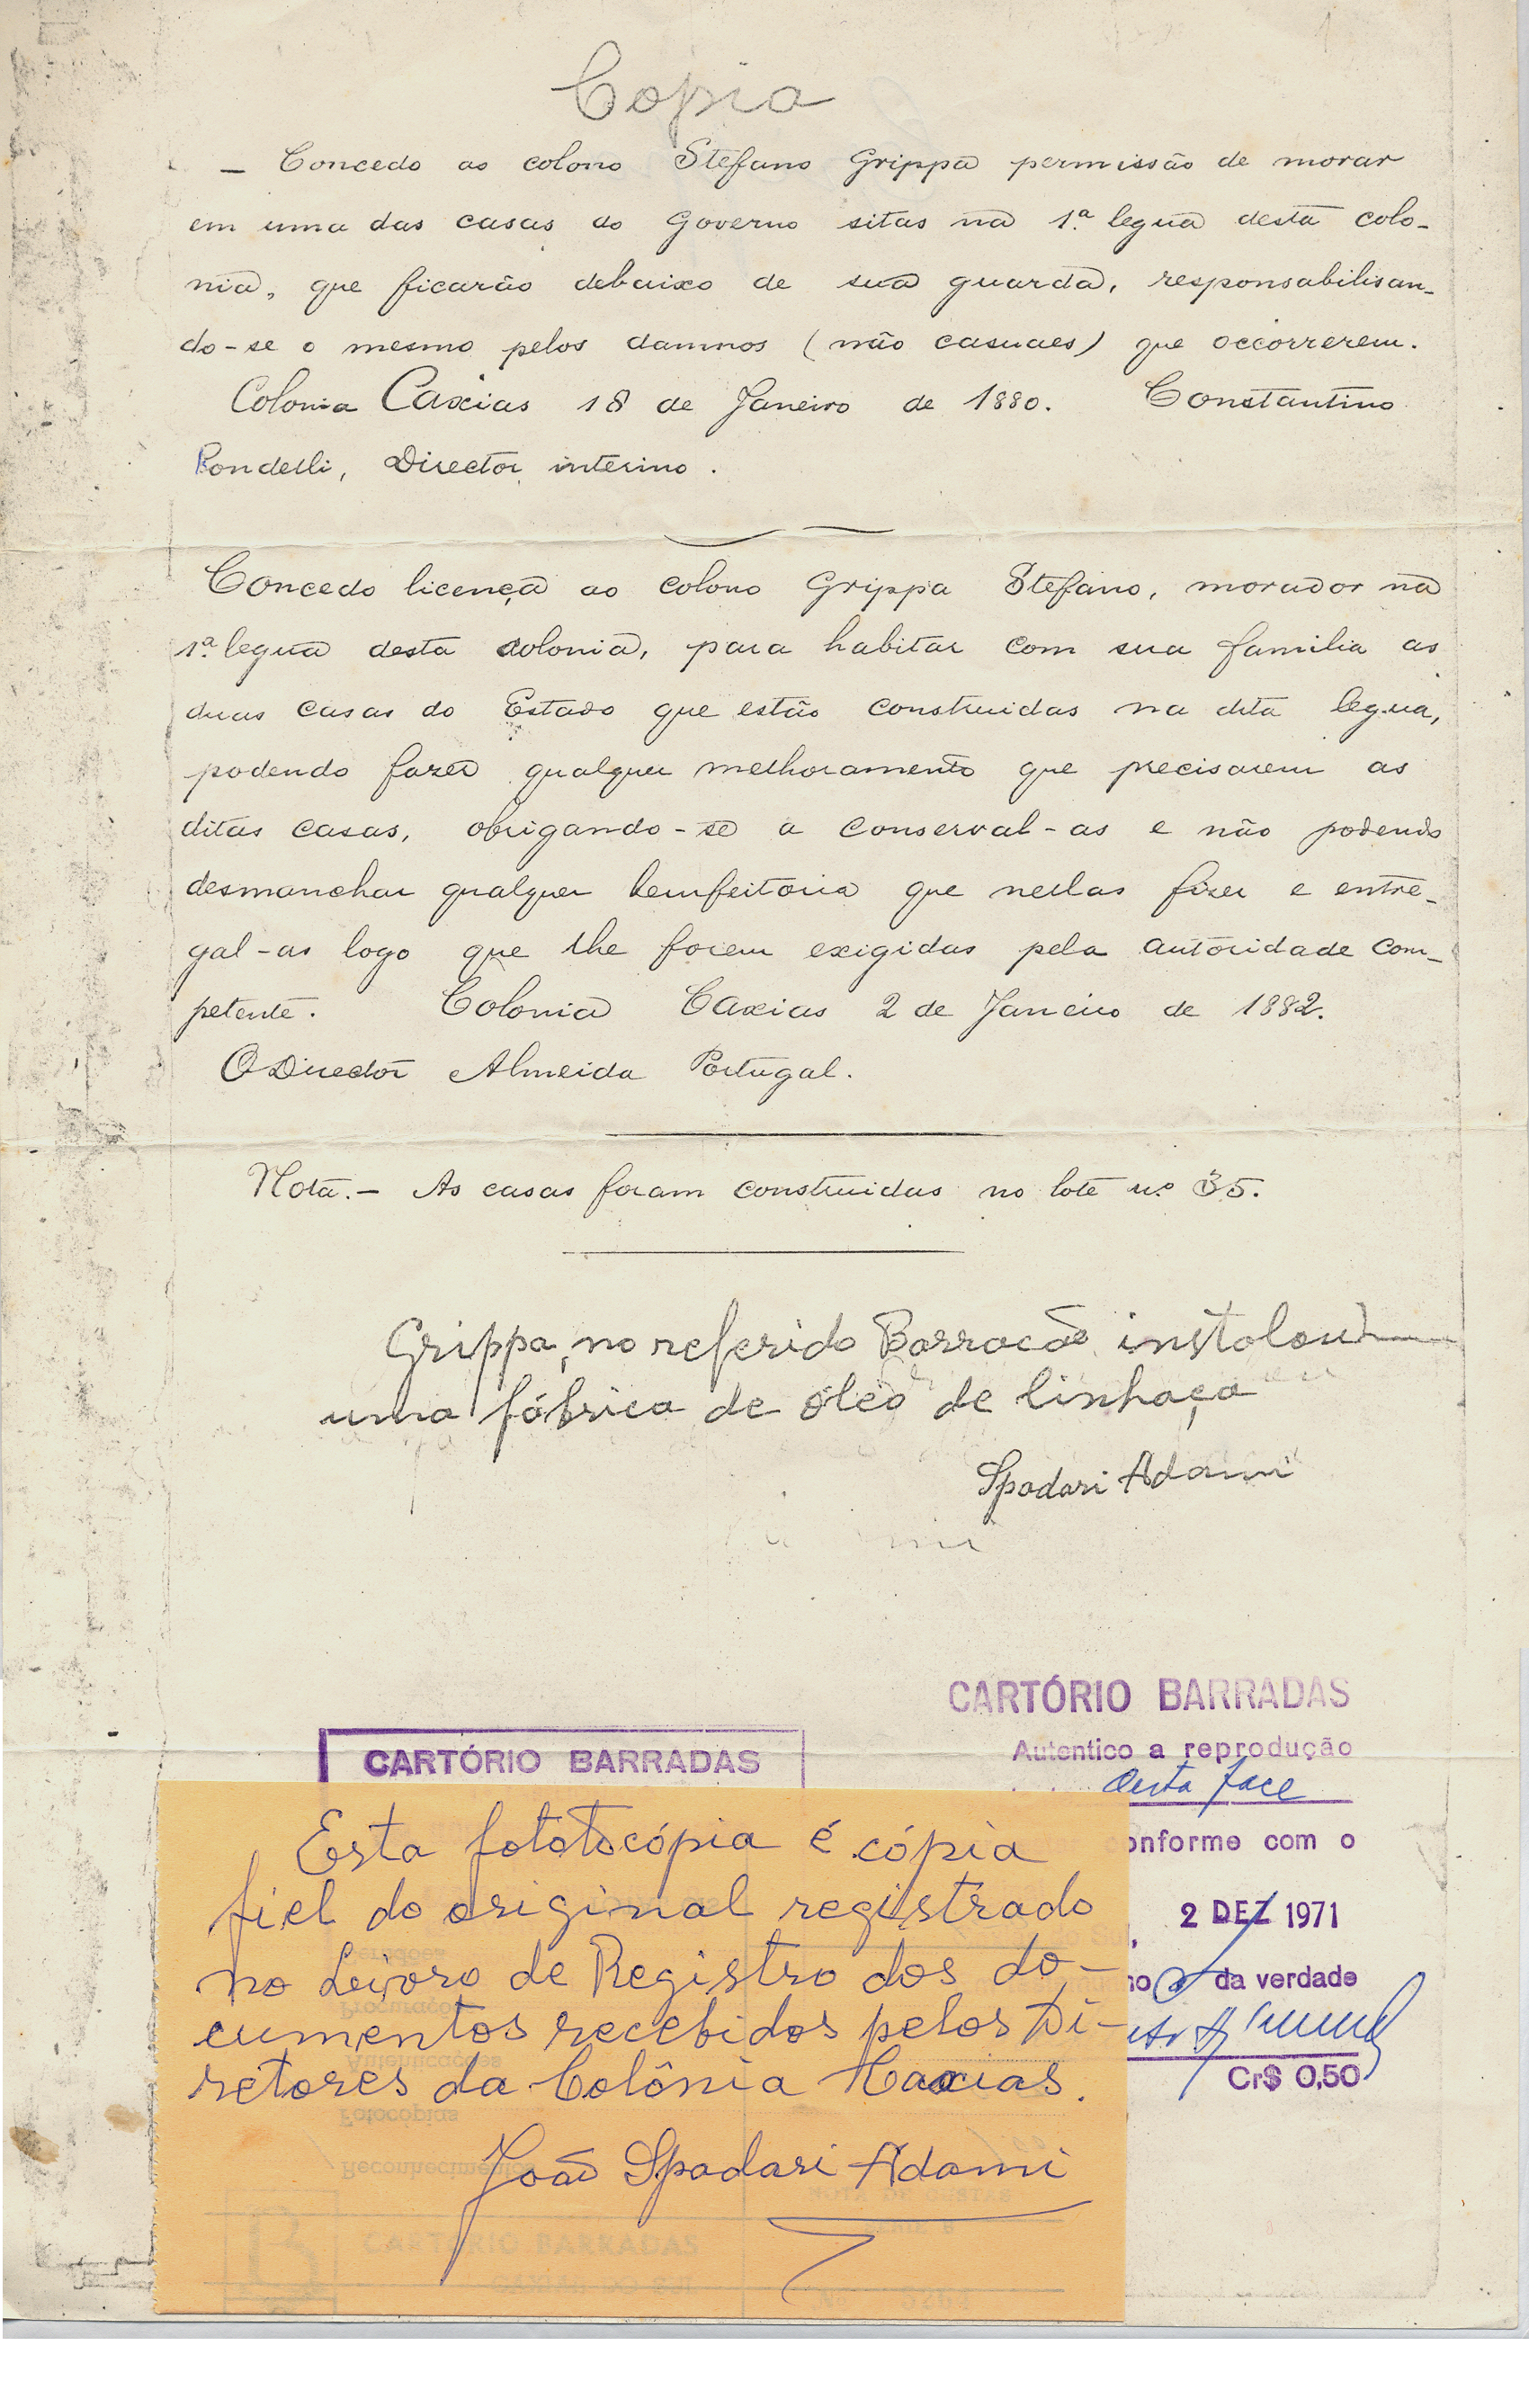 Copia
— Concedo ao colono Stefano Grippa permissão de morar
em uma das casas do Governo sitas na 1ª legua desta colo-
nia, que ficarão debaixo de sua guarda, responsabilisan-
do-se o mesmo pelos damnos (não casuaes) que occorrerem.
Colonia Caxias 18 de Janeiro de 1880. Constantino
Rondelli, Director interino.
Concedo licença ao colono Grippa Stefano, morador na
1ª legua desta colonia, para habitar com sua familia as
duas casas do Estado que estão construidas na dita legua,
podendo fazer qualquer melhoramento que precisarem as
ditas casas, obrigando-se a conserval-as e não podendo
desmanchar qualquer bemfeitoria que nellas fizer e entre-
gal-as logo que lhe forem exigidas pela autoridade com-
petente. Colonia Caxias 2 de Janeiro de 1882.
O Director Almeida Portugal.
Nota.— As casas foram construidas no lote nº 35.
Grippa, no referido Barracão instalou
uma fábrica de óleo de linhaça
Spadari Adami
CARTÓRIO BARRADAS
Autentico a reprodução
desta face
CARTÓRIO BARRADAS
onforme com o
2 DEZ 1971
da verdade
Cr$ 0,50
Esta fototocópia é cópia
fiel do original registrado
no Leivoro de Registro dos do-
cumentos recebidos pelos Di-
retores da Colônia Caxias.
João Spadari Adami